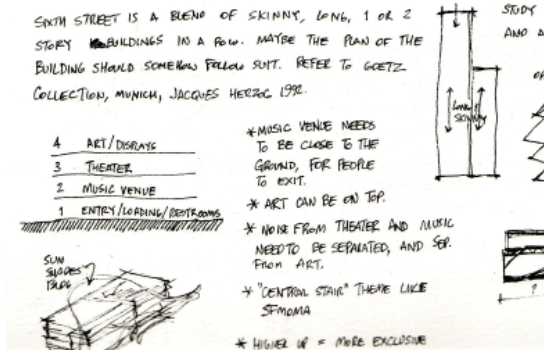 SIXTH STREET IS A BLEND OF SKINNY, LONG, 1 OR 2
STORY BUILDINGS IN A ROW. MAYBE THE PLAN OF THE
BUILDING SHOULD SOMEHOW FOLLOW SUIT. REFER TO GOETZ
COLLECTION, MUNICH, JACQUES HERZOG 1992.
4 ART/DISPLAYS
3 THEATER
2 MUSIC VENUE
1 ENTRY/LOADING/RESTROOMS
SUN
SHADES
BLDG
* MUSIC VENUE NEEDS
TO BE CLOSE TO THE
GROUND, FOR PEOPLE
TO EXIT.
* ART CAN BE ON TOP.
* NOISE FROM THEATER AND MUSIC
NEED TO BE SEPARATED, AND SEP.
FROM ART.
* "CENTRAL STAIR" THEME LIKE
SFMOMA
* HIGHER UP = MORE EXCLUSIVE
LONG &
SKINNY
STUDY
AND A
?